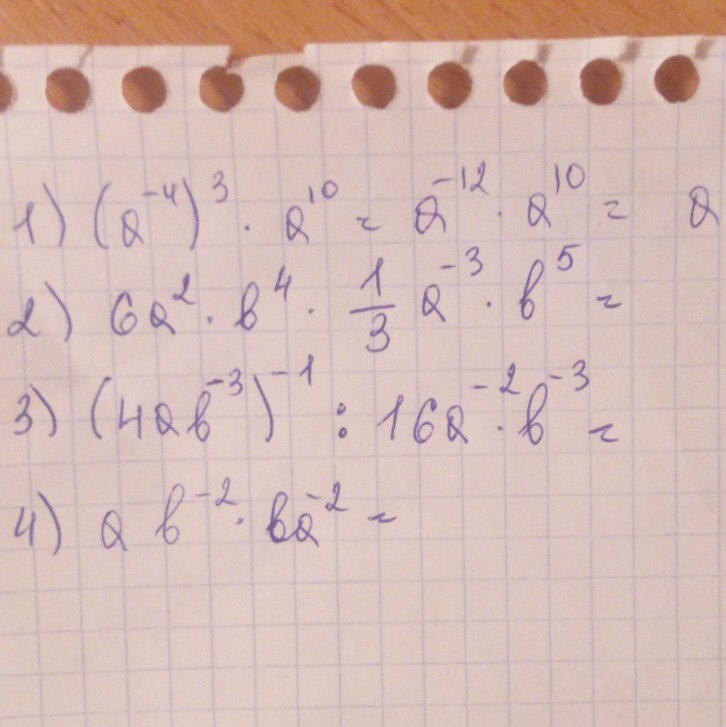 1) (a⁻⁴)³ · a¹⁰ = a⁻¹² · a¹⁰ = a
2) 6a² · b⁴ · 1/3 a⁻³ · b⁵ =
3) (4ab⁻³)⁻¹ : 16a⁻² · b⁻³ =
4) a b⁻² · ba⁻² =